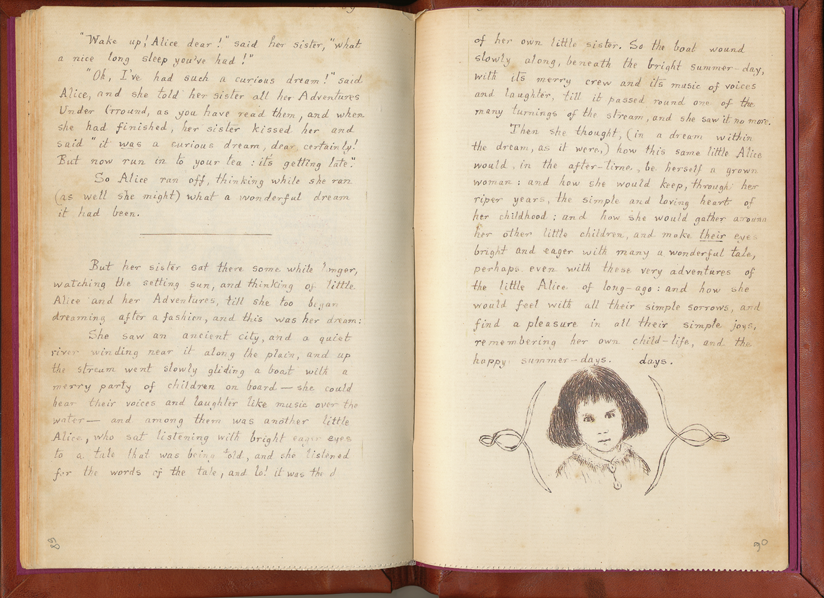 "Wake up! Alice dear!" said her sister, "what
a nice long sleep you've had!"
"Oh, I've had such a curious dream!" said
Alice, and she told her sister all her Adventures
Under Ground, as you have read them, and when
she had finished, her sister kissed her and
said "it was a curious dream, dear, certainly!
But now run in to your tea: it's getting late."
So Alice ran off, thinking while she ran
(as well she might) what a wonderful dream
it had been.
But her sister sat there some while longer,
watching the setting sun, and thinking of little
Alice and her Adventures, till she too began
dreaming after a fashion, and this was her dream:
She saw an ancient city, and a quiet
river winding near it along the plain, and up
the stream went slowly gliding a boat with a
merry party of children on board — she could
hear their voices and laughter like music over the
water — and among them was another little
Alice, who sat listening with bright eager eyes
to a tale that was being told, and she listened
for the words of the tale, and lo! it was the d
89
of her own little sister. So the boat wound
slowly along, beneath the bright summer-day,
with its merry crew and its music of voices
and laughter, till it passed round one of the
many turnings of the stream, and she saw it no more.
Then she thought, (in a dream within
the dream, as it were,) how this same little Alice
would, in the after-time, be herself a grown
woman: and how she would keep, through her
riper years, the simple and loving heart of
her childhood: and how she would gather around
her other little children, and make their eyes
bright and eager with many a wonderful tale,
perhaps even with these very adventures of
the little Alice of long-ago: and how she
would feel with all their simple sorrows, and
find a pleasure in all their simple joys,
remembering her own child-life, and the
happy summer-days. days.
90